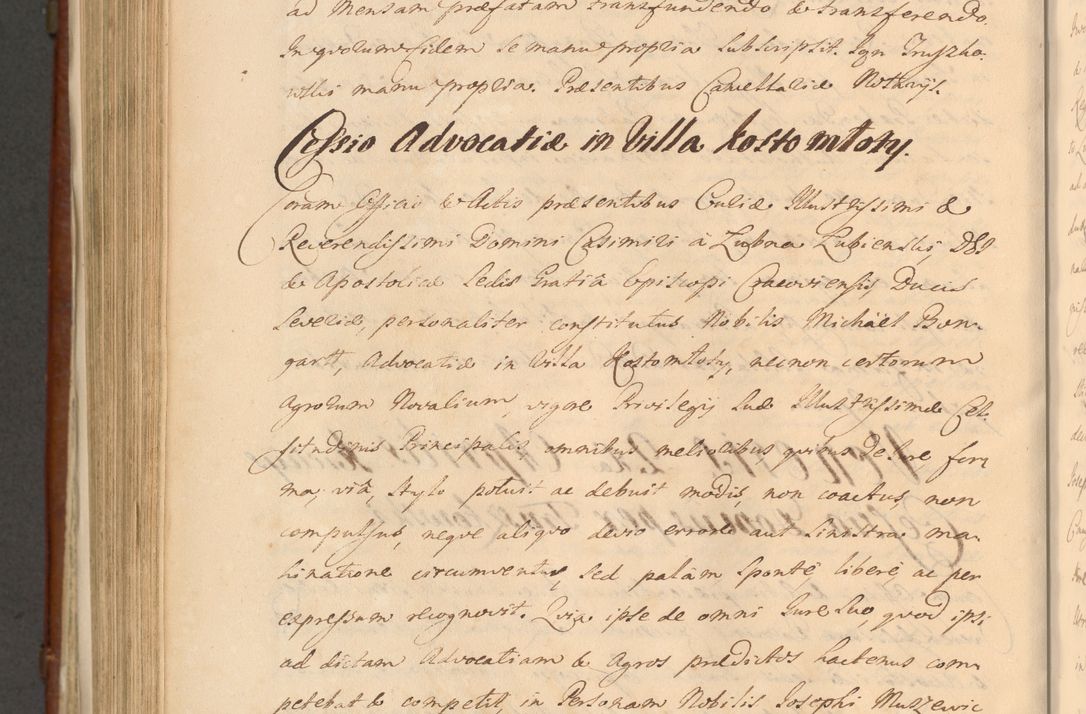 ad Mensam præfatam transfundendo & transferendo.
In quorum fidem se manu propria subscripsit. Ign Truszko-
wski manu propria. Præsentibus Cancellariæ Notarijs.
Cessio Advocatiæ in Villa Kostomłoty.
Coram Officio & Actis præsentibus Curiæ Illustrissimi &
Reverendissimi Domini Casimiri à Łubna Łubienski, DEI
& Apostolicæ Sedis Gratiâ Episcopi Cracoviensis, Ducis
Severiæ, personaliter constitutus Nobilis Michäel Bon-
gartt, Advocatiæ in Villa Kostomłoty, necnon certorum
Agrorum Novalium, vigore Privilegij suæ Illustrissimæ Cel-
situdinis Principalis, omnibus melioribus quibus de Iure for-
ma, viâ, stylo potuit ac debuit modis, non coactus, non
compulsus, neque aliquo devio errore aut sinistra ma-
chinatione circumventus, sed palàm spontè, liberè, ac per
expressum recognovit. Quia ipse de omni Iure suo, quod ipsi
ad dictam Advocatiam & Agros prædictos hactenus com-
petebat & competit, in Personam Nobilis Josephi Muszewic